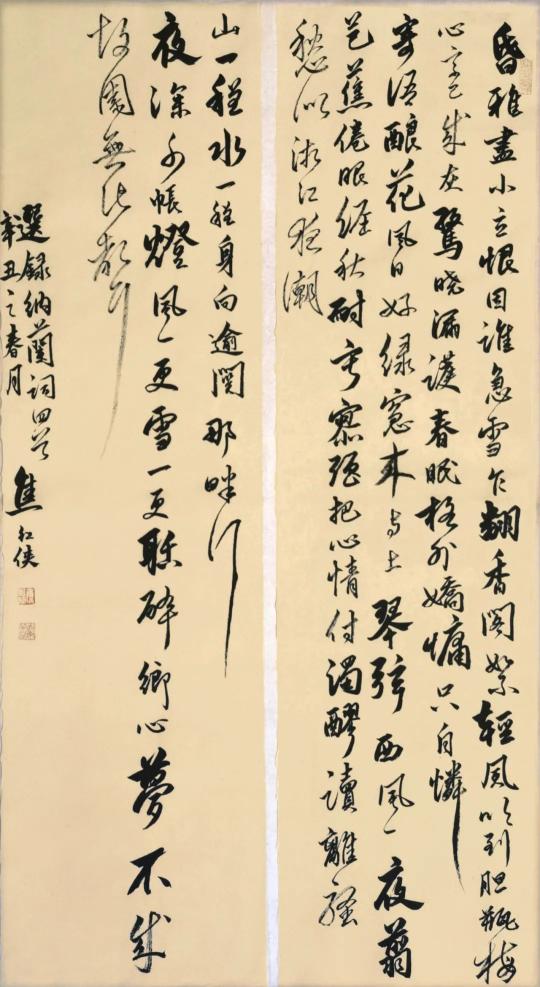 昏雅盡小立恨因誰急雪乍翻香閣絮輕風吹到胆瓶梅
心字已成灰驚曉漏護春眠格外嬌慵只自憐
寄語釀花風日好綠窗來与上琴弦西風一夜翦
芭蕉倦眼經秋耐寂寥强把心情付濁醪讀離騷
愁似湘江夜潮
山一程水一程身向逾關那畔行
夜深千帳燈風一更雪一更聒碎鄉心夢不成
故園無此聲
選録納蘭詞四首焦红侠
辛丑之春月